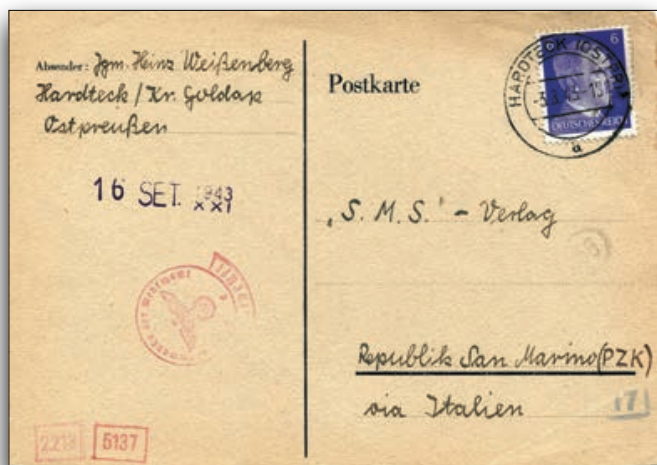 Absender: Jgm. Heinz Weißenberg
Hardteck / Kr. Goldap
Ostpreußen
16 SET. 1943
XXI
2213 5137
Postkarte
6 6
HARDTECK (OSTPR)
a
DEUTSCHES REICH
„S. M. S.' - Verlag
Republik San Marino (PZK)
via Italien
17